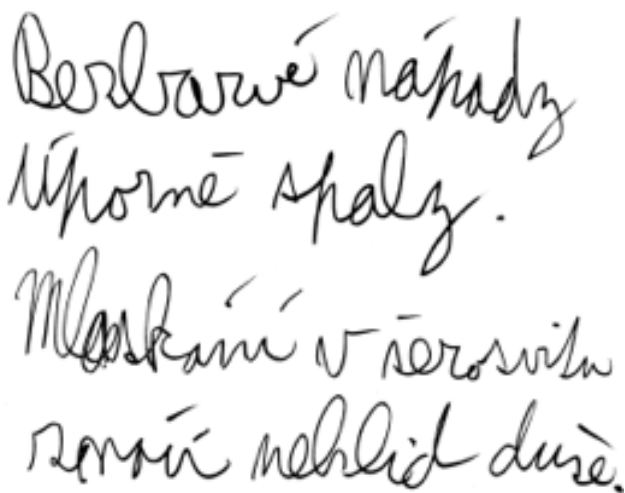 Bezbarvé nápady
úporně spaly.
Mlaskání v šerosvitu
neklid duše.